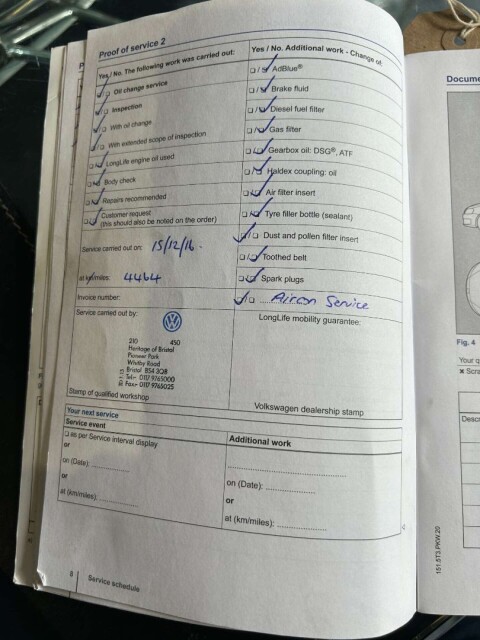 Proof of service 2
Yes / No. The following work was carried out:
Oil change service
Inspection
With oil change
With extended scope of inspection
LongLife engine oil used
Body check
Repairs recommended
Customer request
(this should also be noted on the order)
Service carried out on: 15/12/16.
at km/miles: 4464
Invoice number:
Service carried out by:
210 450
Heritage of Bristol
Pioneer Park
Whitby Road
Bristol BS4 3QB
Tel:- 0117 9765000
Fax:- 0117 9765025
Stamp of qualified workshop
Yes / No. Additional work - Change of:
AdBlue®
Brake fluid
Diesel fuel filter
Gas filter
Gearbox oil: DSG®, ATF
Haldex coupling: oil
Air filter insert
Tyre filler bottle (sealant)
Dust and pollen filter insert
Toothed belt
Spark plugs
Aircon Service
LongLife mobility guarantee:
Volkswagen dealership stamp
Your next service
Service event
as per Service interval display
or
on (Date):
or
at (km/miles):
Additional work
on (Date):
or
at (km/miles):
8 Service schedule
Docume
Fig. 4
Your
Scra
Descr
151.5T3.PKW.20